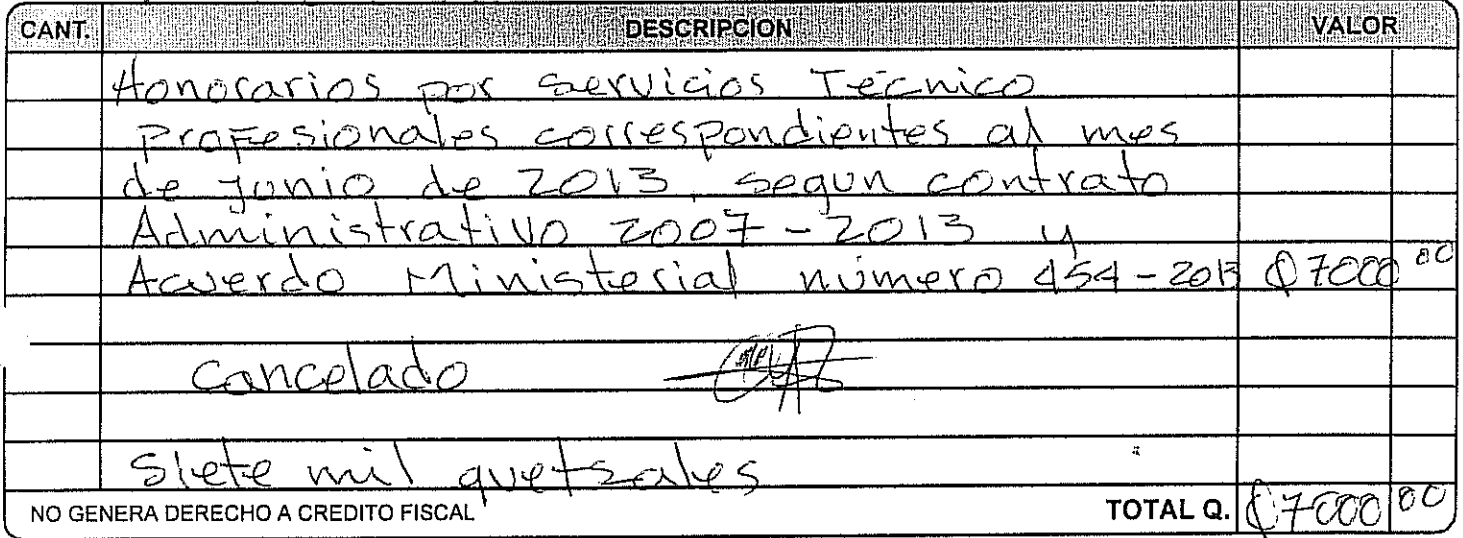 CANT. DESCRIPCION VALOR
Honorarios por servicios Técnico
Profesionales correspondientes al mes
de junio de 2013, segun contrato
Administrativo 2007-2013 y
Acuerdo Ministerial número 454-2013 Q7000 00
Cancelado
Siete mil quetzales
NO GENERA DERECHO A CREDITO FISCAL TOTAL Q. Q7000 00